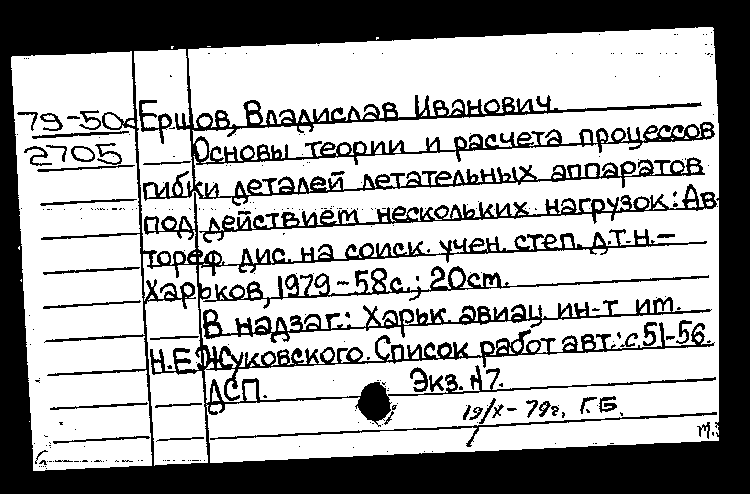 79-50с Ершов, Владислав Иванович.
2705 Основы теории и расчета процессов
гибки деталей летательных аппаратов
под действием нескольких нагрузок: Ав
тореф. дис. на соиск. учен. степ. д.т.н.–
Харьков, 1979 – 58с.; 20см.
В надзаг.: Харьк. авиац. ин-т им.
Н.Е.Жуковского. Список работ авт.: с.51-56.
ДСП. Экз. №7.
19/X – 79г. Г.Б.